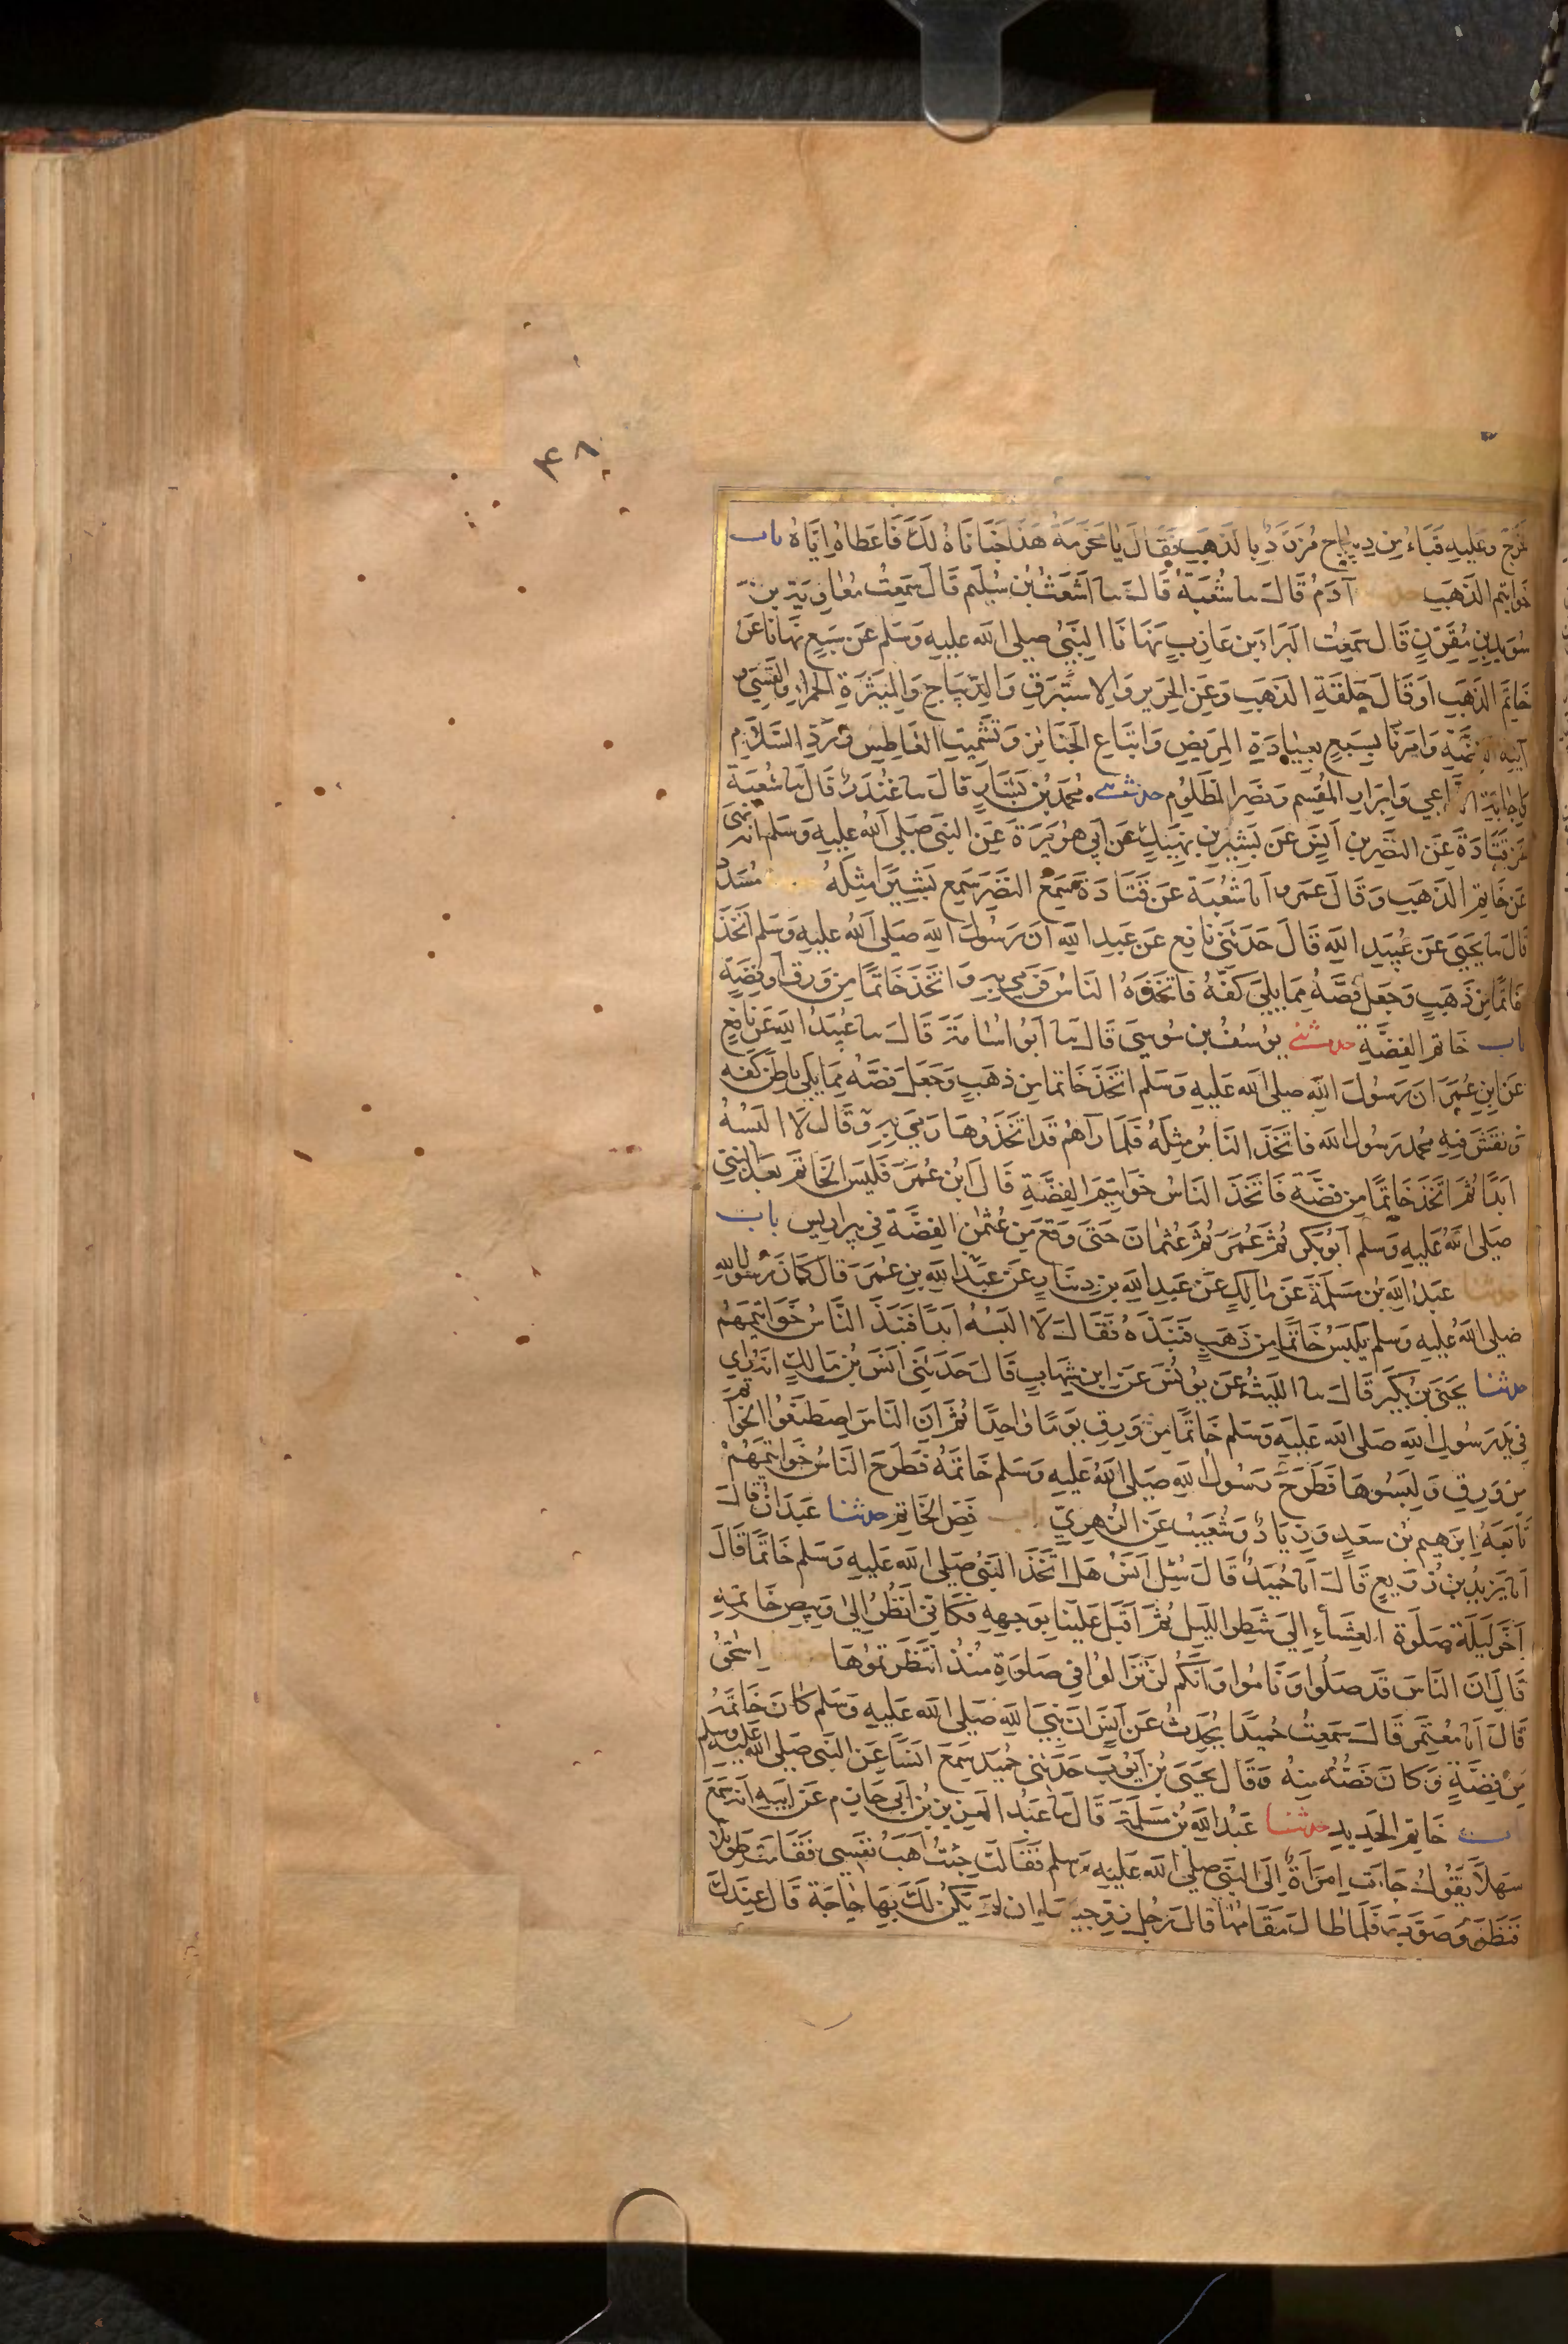 ۴۸
فخرج وعليه قباء من ديباج مزرد بالذهب فقال يا مخرمة هذا خبأناه لك فاعطاه اياه باب
خواتيم الذهب حدثنا آدم قال سا شعبة قال سا اشعث بن سليم قال سمعت معاوية بن
سويد بن مقرن قال سمعت البراء بن عازب نهانا النبي صلى الله عليه وسلم عن سبع نهانا عن
خاتم الذهب او قال حلقة الذهب وعن الحرير والاستبرق والديباج والميثرة الحمراء والقسي و
آنية الفضة وامرنا بسبع بعيادة المريض واتباع الجنائز وتشميت العاطس ورد السلام
واجابة الداعي وابرار المقسم ونصر المظلوم حدثني محمد بن بشار قال سا غندر قال سا شعبة
عن قتادة عن النضر بن انس عن بشير بن نهيك عن ابي هريرة عن النبي صلى الله عليه وسلم انه نهى
عن خاتم الذهب وقال عمرو انا شعبة عن قتادة سمع النضر سمع بشيرا مثله مسدد
قال سا يحيى عن عبيد الله قال حدثني نافع عن عبد الله ان رسول الله صلى الله عليه وسلم اتخذ
خاتما من ذهب وجعل فصه مما يلي كفه فاتخذوه الناس فرمي به واتخذ خاتما من ورق او فضة
باب خاتم الفضة حدثني يوسف بن موسى قال سا ابو اسامة قال سا عبيد الله عن نافع
عن ابن عمر ان رسول الله صلى الله عليه وسلم اتخذ خاتما من ذهب وجعل فصه مما يلي باطن كفه
ونقش فيه محمد رسول الله فاتخذ الناس مثله فلما رآهم قد اتخذوها رمي به وقال لا البسه
ابدا ثم اتخذ خاتما من فضة فاتخذ الناس خواتيم الفضة قال ابن عمر فلبس الخاتم بعد النبي
صلى الله عليه وسلم ابو بكر ثم عمر ثم عثمان حتى وقع من عثمن الفضة في بير اريس باب
حدثنا عبد الله بن مسلمة عن مالك عن عبد الله بن دينار عن عبد الله بن عمر قال كان رسول الله
صلى الله عليه وسلم يلبس خاتما من ذهب فنبذه فقال لا البسه ابدا فنبذ الناس خواتيمهم
حدثنا يحيى بن بكير قال سا الليث عن يونس عن ابن شهاب قال حدثني انس بن مالك انه راي
في يد رسول الله صلى الله عليه وسلم خاتما من ورق يوما واحدا ثم ان الناس اصطنعوا الخواتم
من ورق ولبسوها فطرح رسول الله صلى الله عليه وسلم خاتمه فطرح الناس خواتيمهم
تابعه ابرهيم بن سعد وزياد وشعيب عن الزهري باب فص الخاتم حدثنا عبدان قال
انا يزيد بن زريع قال انا حميد قال سئل انس هل اتخذ النبي صلى الله عليه وسلم خاتما قال
اخر ليلة صلوة العشاء الي شطر الليل ثم اقبل علينا بوجهه فكاني انظر الى وبيص خاتمه
قال ان الناس قد صلوا وناموا وانكم لن تزالوا في صلوة منذ انتظرتموها حدثنا اسحق
قال انا معتمر قال سمعت حميدا يحدث عن انس ان نبي الله صلى الله عليه وسلم كان خاتمه
من فضة وكان فصه منه وقال يحيى بن ايوب حدثني حميد سمع انسا عن النبي صلى الله عليه وسلم
باب خاتم الحديد حدثنا عبد الله بن مسلمة قال سا عبد العزيز بن ابي حازم عن ابيه انه سمع
سهلا يقول جاءت امراة الى النبي صلى الله عليه وسلم فقالت جئت اهب نفسي فقامت طويلا
فنظر وصوب فلما طال مقامها قال رجل زوجنيها ان لم يكن لك بها حاجة قال عندك